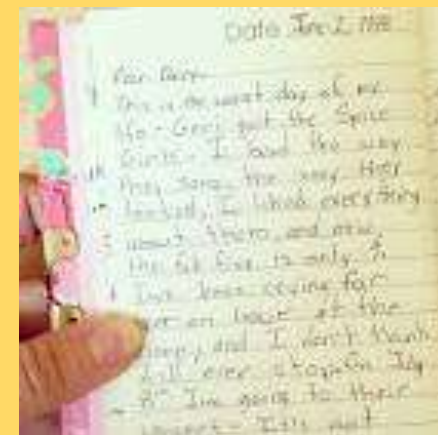 Date June 2, 1998
Dear Diary
This is the worst day of my
life - Geri quit the Spice
Girls. I loved the way
they sang, the way they
looked, I liked everything
about them, and now
the fab five is only 4
I've been crying for
over an hour at the
and I don't think
I'll ever stop. On July
8th I'm going to their
concert - It's not